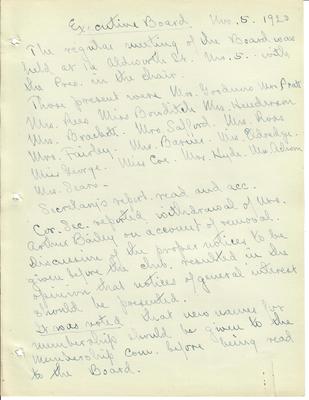 Executive Board. Nov. 5. 1920
The regular meeting of the Board was
held at 14 Aldworth St. Nov. 5. with
the Pres. in the chair.
Those present were Mrs. Goodwin Mrs. Pratt
Mrs. Rees Miss Bowditch Mrs. Henderson
Mrs. Brackett. Mrs. Safford. Mrs. Ross
Mrs. Fairley. Mrs. Barrier. Mrs. Eldredge.
Miss George. Miss Coe. Mrs. Hyde. Ms. Alison
Mrs. Sears.
Secretary's report read and acc.
Cor. Sec. reported withdrawal of Mrs.
Arthur Bailey on account of removal.
Discussion of the proper notices to be
given before the club resulted in the
opinion that notices of general interest
should be presented.
It was noted that new names for
membership should be given to the
membership com. before being read
to the Board.